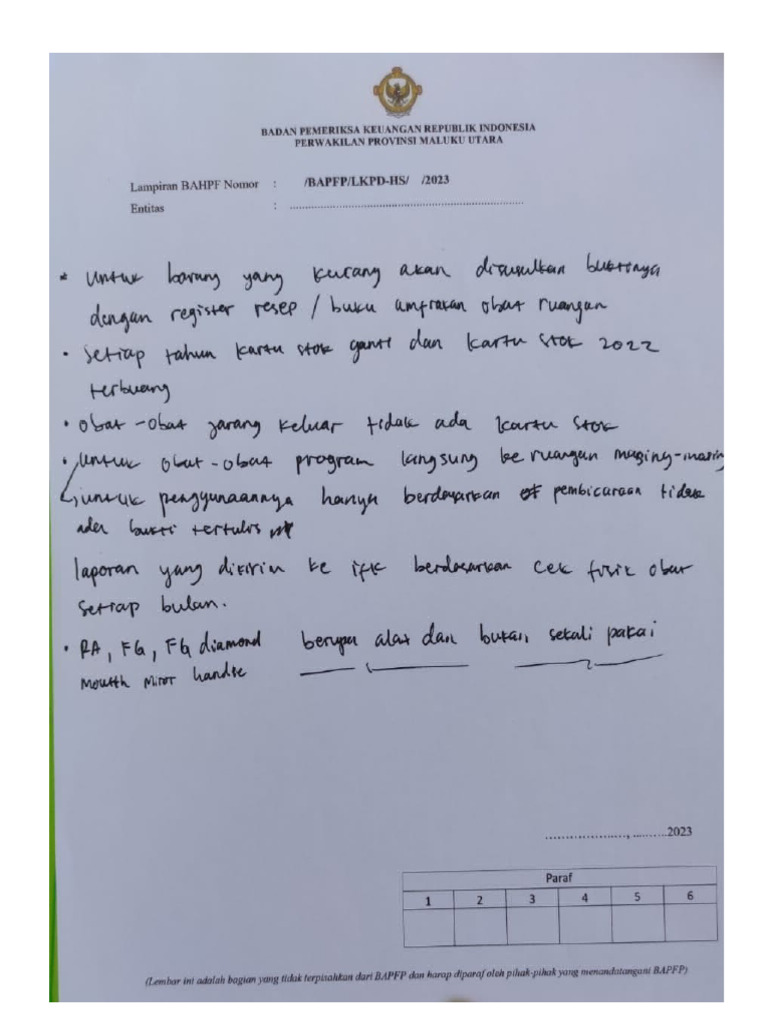 BADAN PEMERIKSA KEUANGAN REPUBLIK INDONESIA
PERWAKILAN PROVINSI MALUKU UTARA
Lampiran BAHPF Nomor : /BAPFP/LKPD-HS/ /2023
Entitas : ........................................................................
* Untuk barang yang kurang akan disusulkan buktinya
dengan register resep / buku amprakan obat ruangan
• Setiap tahun kartu stok ganti dan kartu stok 2022
terbuang
• Obat-obat jarang keluar tidak ada kartu stok
• untuk obat-obat program langsung ke ruangan masing-masing
untuk penggunaannya hanya berdasarkan pembicaraan tidak
ada bukti tertulis
laporan yang dikirim ke ifk berdasarkan cek fisik obat
setiap bulan.
• RA, FG, FG diamond berupa alat dan bukan sekali pakai
Moutth Miror handle
....................., .........2023
Paraf
1 2 3 4 5 6
(Lembar ini adalah bagian yang tidak terpisahkan dari BAPFP dan harap diparaf oleh pihak-pihak yang menandatangani BAPFP)